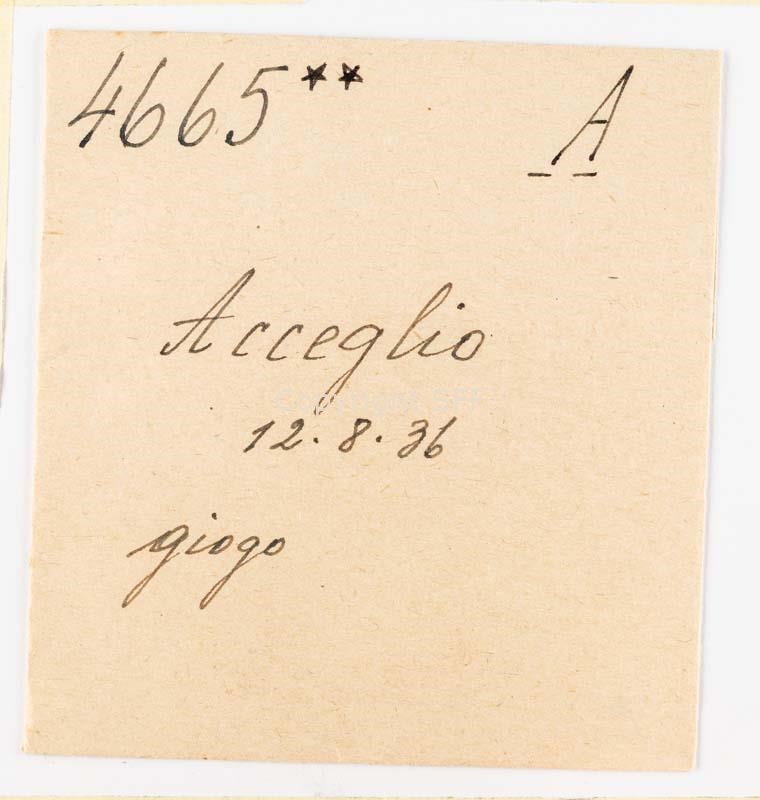 4665** A
Acceglio
12.8.36
giogo